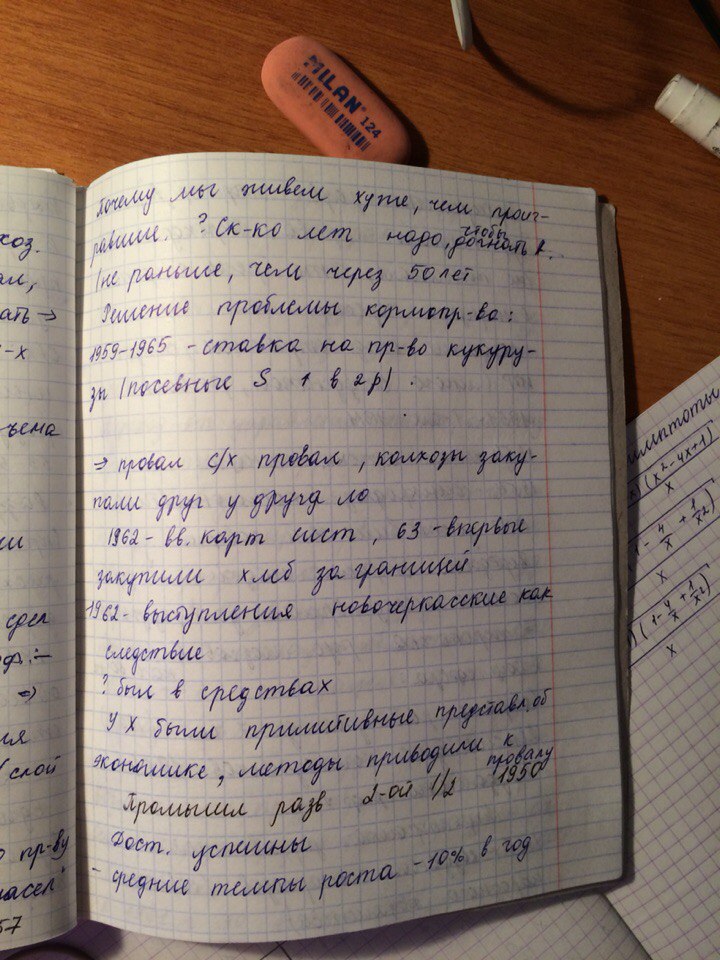 MILAN® 124
Почему мы живем хуже, чем проиг-
равшие. ? Ск-ко лет надо, чтобы догнать А.
(не раньше, чем через 50 лет
Решение проблемы кормопр-ва:
1959-1965 - ставка на пр-во кукуру-
зы (посевные S ↑ в 2 р) .
⇒ провал с/х провал, колхозы заку-
пали друг у друга
1962 - вв. карт сист, 63 - впервые
закупили хлеб за границей
1962 - выступления новочеркасские как
следствие
? был в средствах
У Х были примитивные представл. об
экономике, методы приводили к провалу
Промышл разв 2-ой 1/2 1950
Дост. успешны
- средние темпы роста - 10% в год
хоз.
ать ⇒
-х
ъема
сдел
⇒
слой
пр-ву
насел
57
(x²-4x+1)
x
1 - 4/x + 1/x²
x
(1 - 4/x + 1/x²)
x